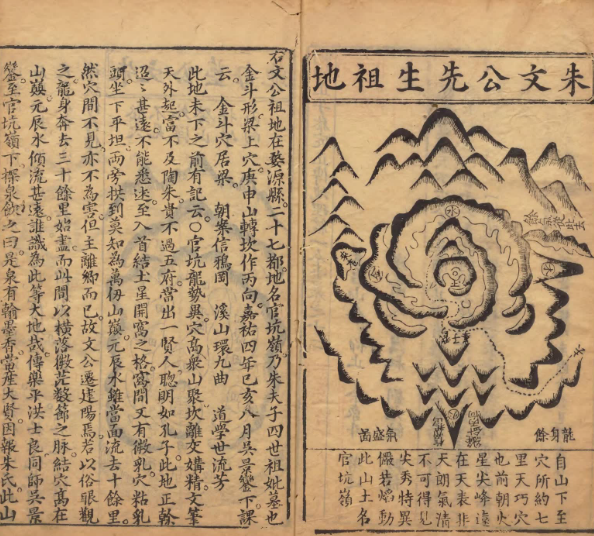 朱文公先生祖地
龍身餘
自山下至
穴所約七
里天巧穴
也前朝火
星尖峰遠
在天表非
天朗氣清
不可得見
尖秀特異
儼若焰動
此山土名
官坑嶺
右文公祖地在婺源縣二十七都地名官坑嶺乃朱夫子四世祖妣墓也
金斗形梁上穴庚申山轉坎作丙向嘉祐四年己亥八月吳景鸞下課
云 金斗穴居梁 朝案信鴉岡 溪山環九曲 道學世流芳
此地未下之前有記云○官坑龍勢異穴高衆山聚坎離交媾精文筆
天外起富不及陶朱貴不過五府當出一賢人聰明如孔子此地正幹
迢迢甚遠不能悉述至入首結土星開窩之格窩間又有微乳穴粘乳
頭坐下平坦兩旁拱到莫知為萬仞山巔元辰水雖當面流去十餘里
然穴間不見亦不為害但主離鄉而已故文公遷建陽焉若以俗眼觀
之龍身奔去三十餘里始盡而此間以橫落微茫數節之脉結穴高在
山巔元辰水傾流甚遠誰識為此等大地哉傳樂平洪士良同師吳景
鸞至官坑嶺下探泉飲之曰是泉有翰墨香當產大賢因報朱氏此山